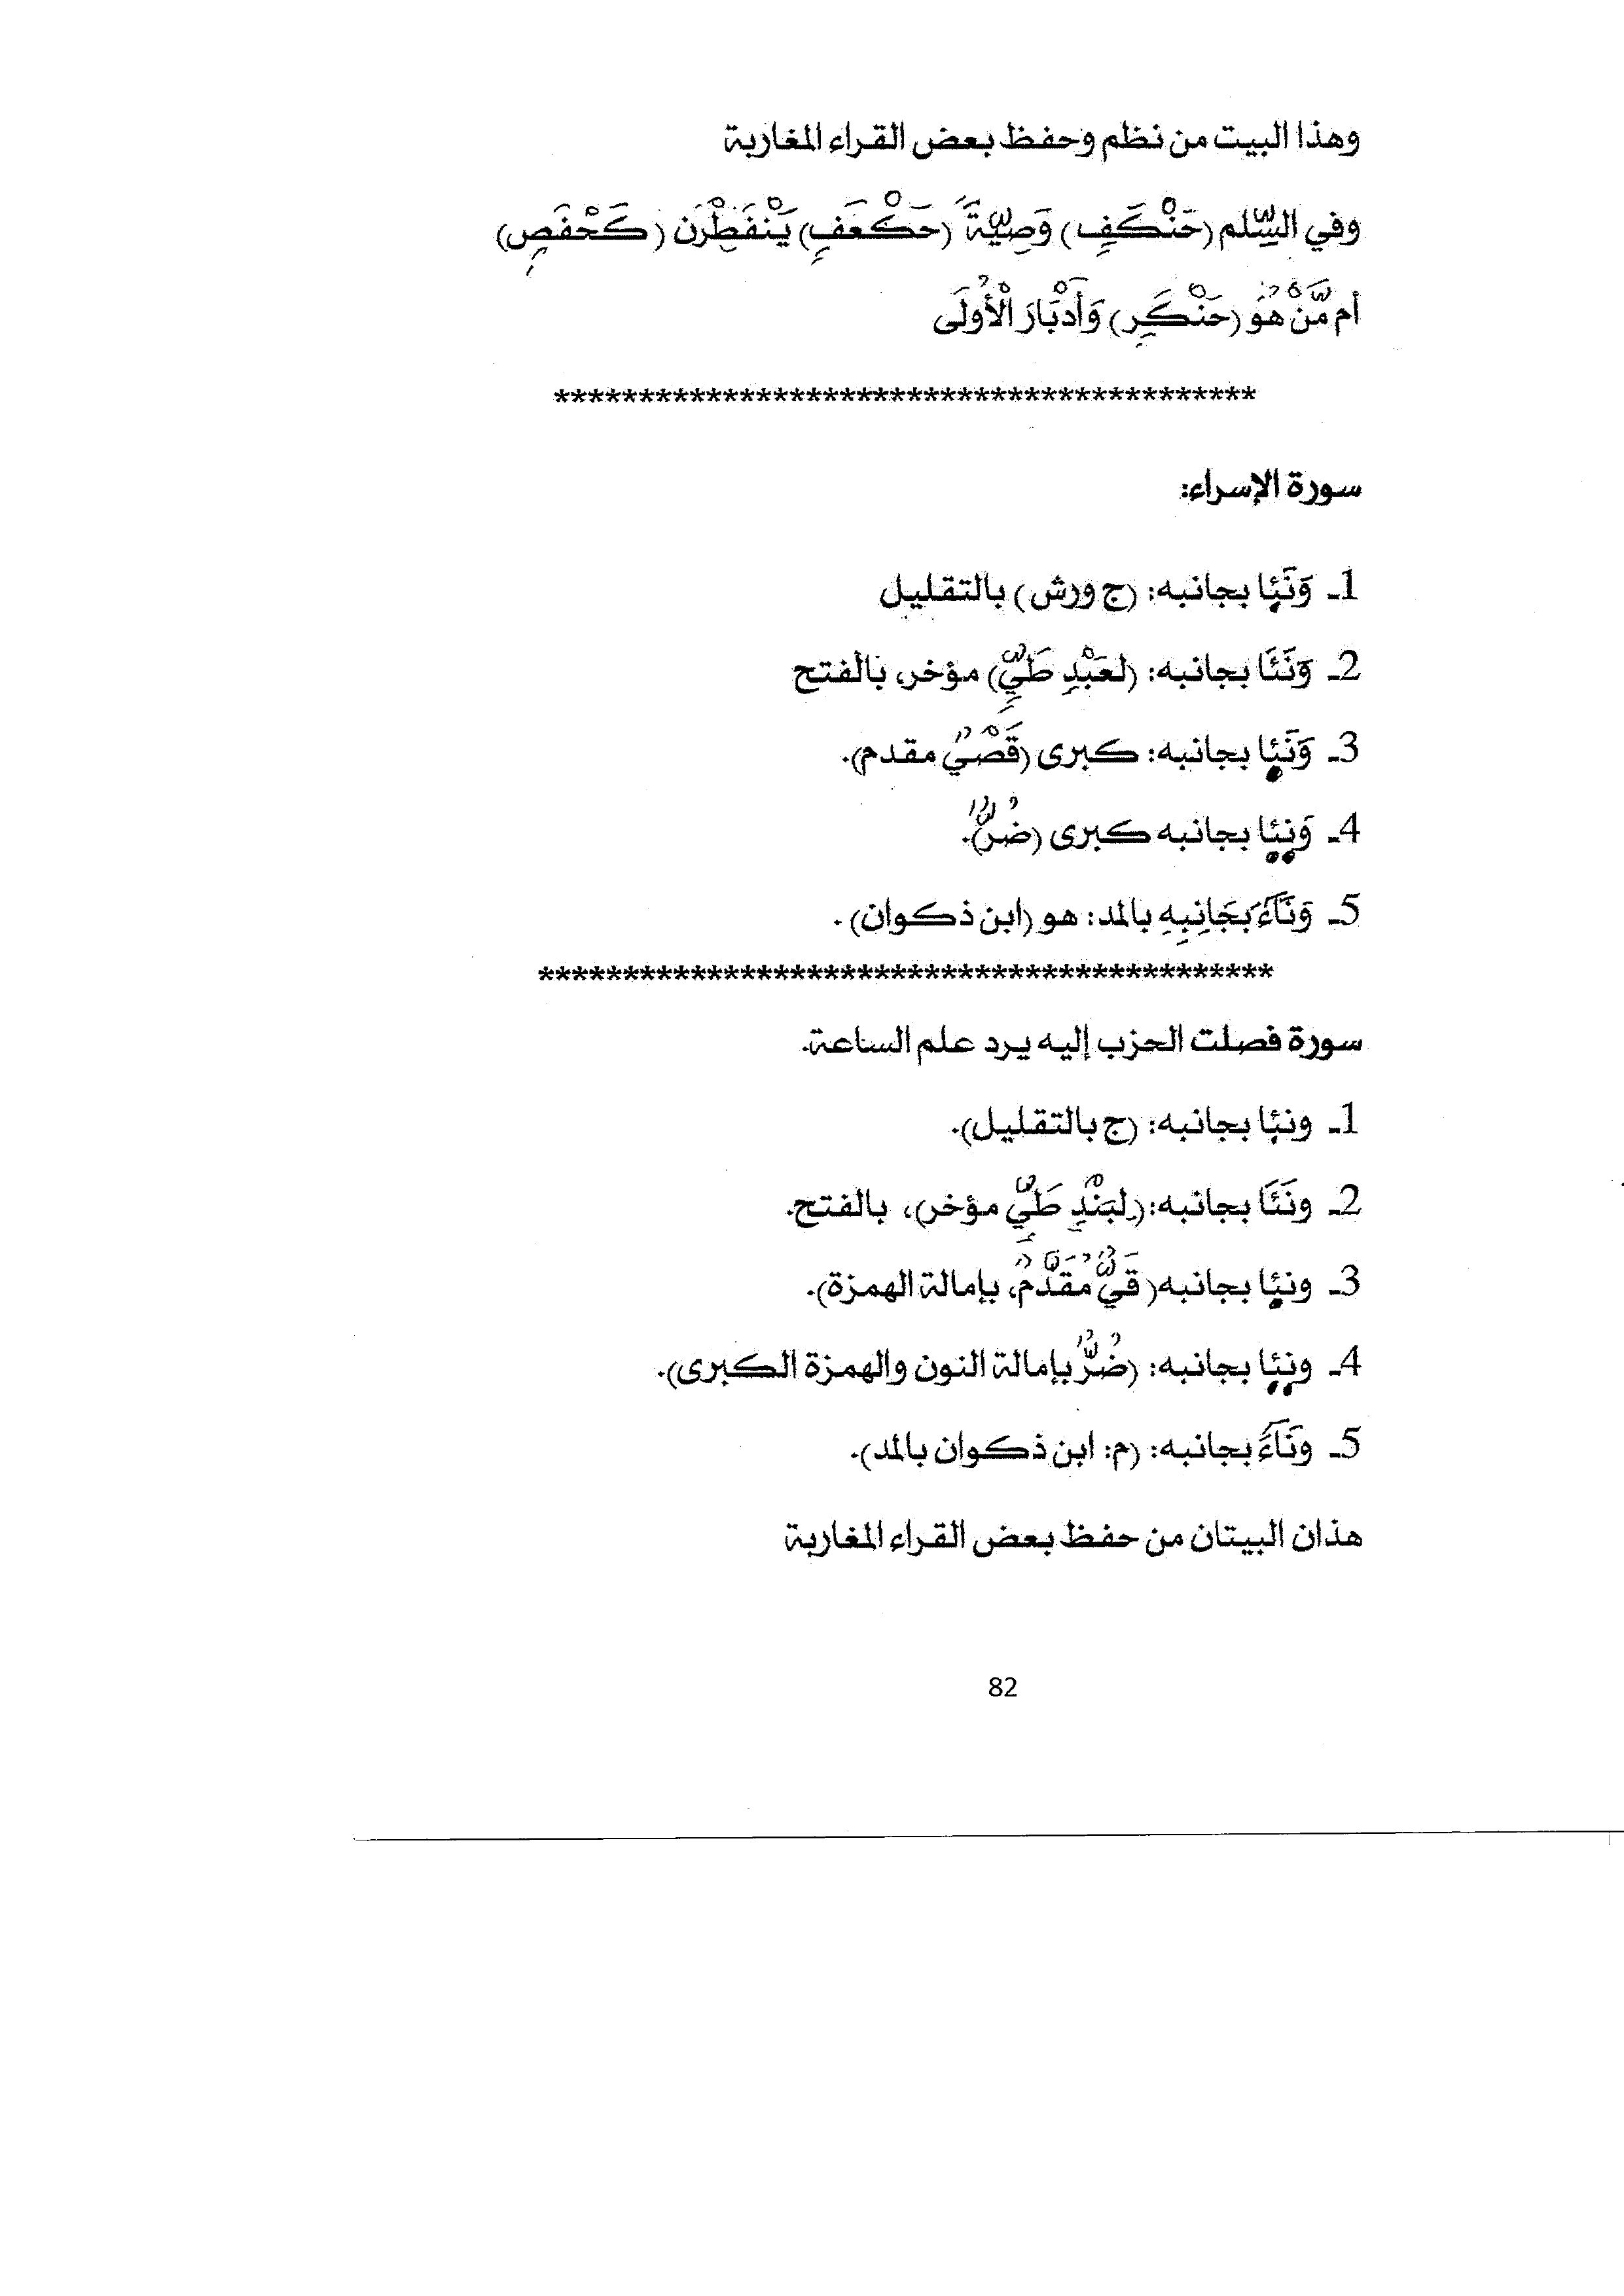 وهذا البيت من نظم وحفظ بعض القراء المغاربة
وفي السِّلم (حَنْكَفٍ) وَصِيَّةً (حَكْعَفٍ) يَنْفَطِرْن (كَحْفَصٍ)
أم مَّنْ هُوَ (حَنْكَرٍ) وَأَدْبَارَ الْأُولَى
******************************************
سورة الإسراء:
1ـ وَنَـِٔا بجانبه: (ج ورش) بالتقليل
2ـ وَنَـَٔا بجانبه: (لعَبْدِ طَيٍّ) مؤخر، بالفتح
3ـ وَنَـِٔا بجانبه: كبرى (قَصْيٌ مقدم).
4ـ وَنِـِٔا بجانبه كبرى (ضُرٌّ).
5ـ وَنَآءَ بجَانِبِهِ بالمد: هو (ابن ذكوان).
********************************************
سورة فصلت الحزب إليه يرد علم الساعة.
1ـ ونـِٔا بجانبه: (ج بالتقليل).
2ـ ونَـَٔا بجانبه: (لبَنْدِ طَيٍّ مؤخر)، بالفتح.
3ـ ونـِٔا بجانبه (قَيٌّ مُقَدَّمٌ، بإمالة الهمزة).
4ـ ونِـِٔا بجانبه: (ضُرٌّ بإمالة النون والهمزة الكبرى).
5ـ ونَآءَ بجانبه: (م: ابن ذكوان بالمد).
هذان البيتان من حفظ بعض القراء المغاربة
82